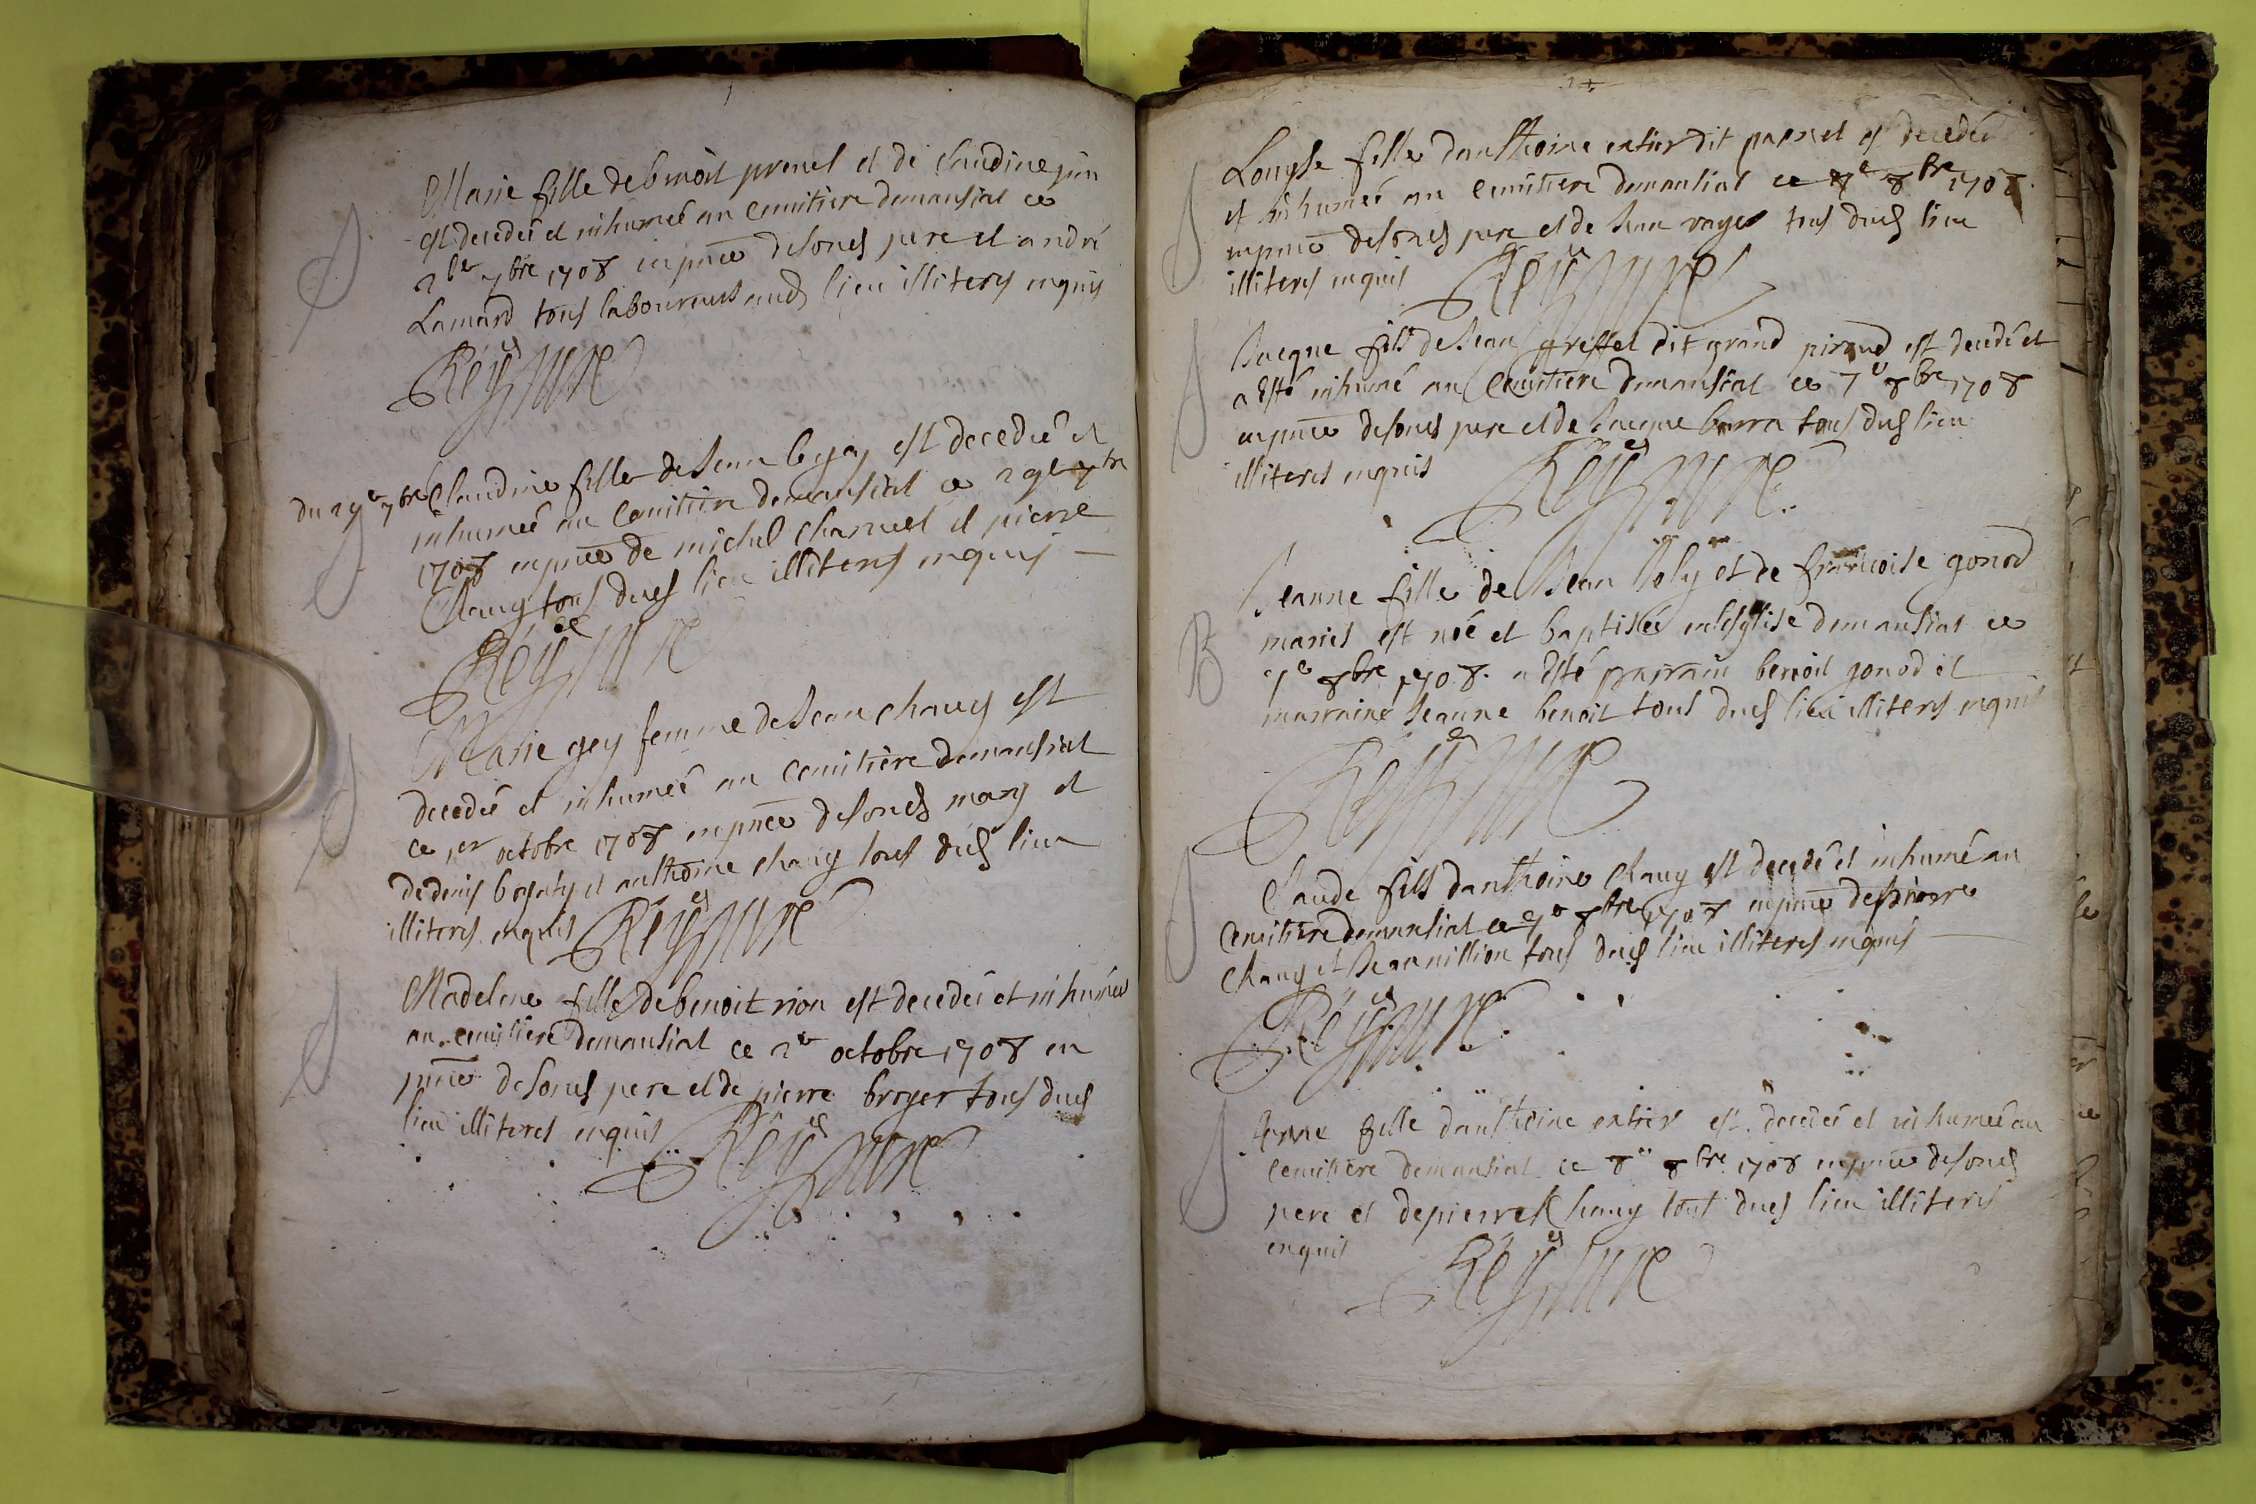 Marie fille de benoit prenel et de Claudine
est decedeé et inhumeé au cemitiere demansiat ce
7bre 1708 en pnce de son pere et andré
Lamard tous laboureurs aud lieu illiterés enquis
Reyssure
du 29e 7bre
Claudine fille de Jean est decedeé et
inhumeé au cemitiere demansiat ce 29e 7bre
1708 en pnce de michel charvet et pierre
Chaug tous dud lieu illiterés enquis
Reyssure
Marie gey femme de Jean chaug est
decedeé et inhumeé au cemitiere demansiat
ce 1er octobre 1708 en pnce de sond mary et
de denis et anthoine chaug tous dud lieu
illiterés enquis Reyssure
Madelene fille de benoit rion est decedeé et inhumeé
au cemitiere demansiat ce 2e octobre 1708 en
pnce de sond pere et de pierre broyer tous dud
lieu illiterés enquis
Reyssure
Louyse fille danthoine dit est decedeé
et inhumeé au cemitiere demansiat ce 8bre 1708
en pnce de sond pere et de Jean tous dud lieu
illiterés enquis Reyssure
Jacque fils de Jean greffet dit grand est decedé et
a Esté inhumé au Cemitiere demansiat ce 7e 8bre 1708
en pnce de sond pere et de Jacque barra tous dud lieu
illiterés enquis
Reyssure
B
Jeanne fille de Jean Joly et de francoise gonod
mariés est neé et baptiseé en lesglise demansiat ce
7e 8bre 1708. a Esté parrain benoit gonod et
marraine Jeanne benoit tous dud lieu illiterés enquis
Reyssure
Claude fils danthoine chaug est decedé et inhumé au
Cemitiere demansiat ce 7e 8bre 1708 en pnce de pierre
chaug et Jean million tous dud lieu illiterés enquis
Reyssure
fille danthoine est decedeé et inhumeé au
cemitiere demansiat ce 8e 8bre 1708 en pnce de sond
pere et de pierre Chaug tout dud lieu illiterés
enquis
Reyssure